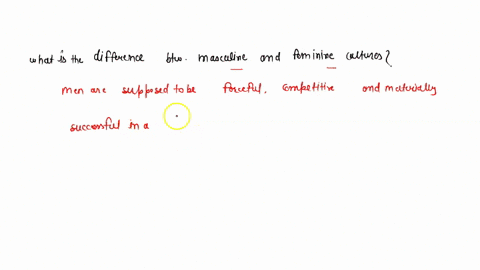 what is the difference btw. masculine and feminine cultures?
men are supposed to be forceful, competitive and materially
successful in a